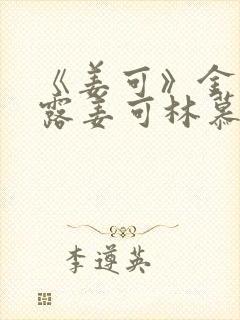 《姜可》全
露姜可林慕
李遵英